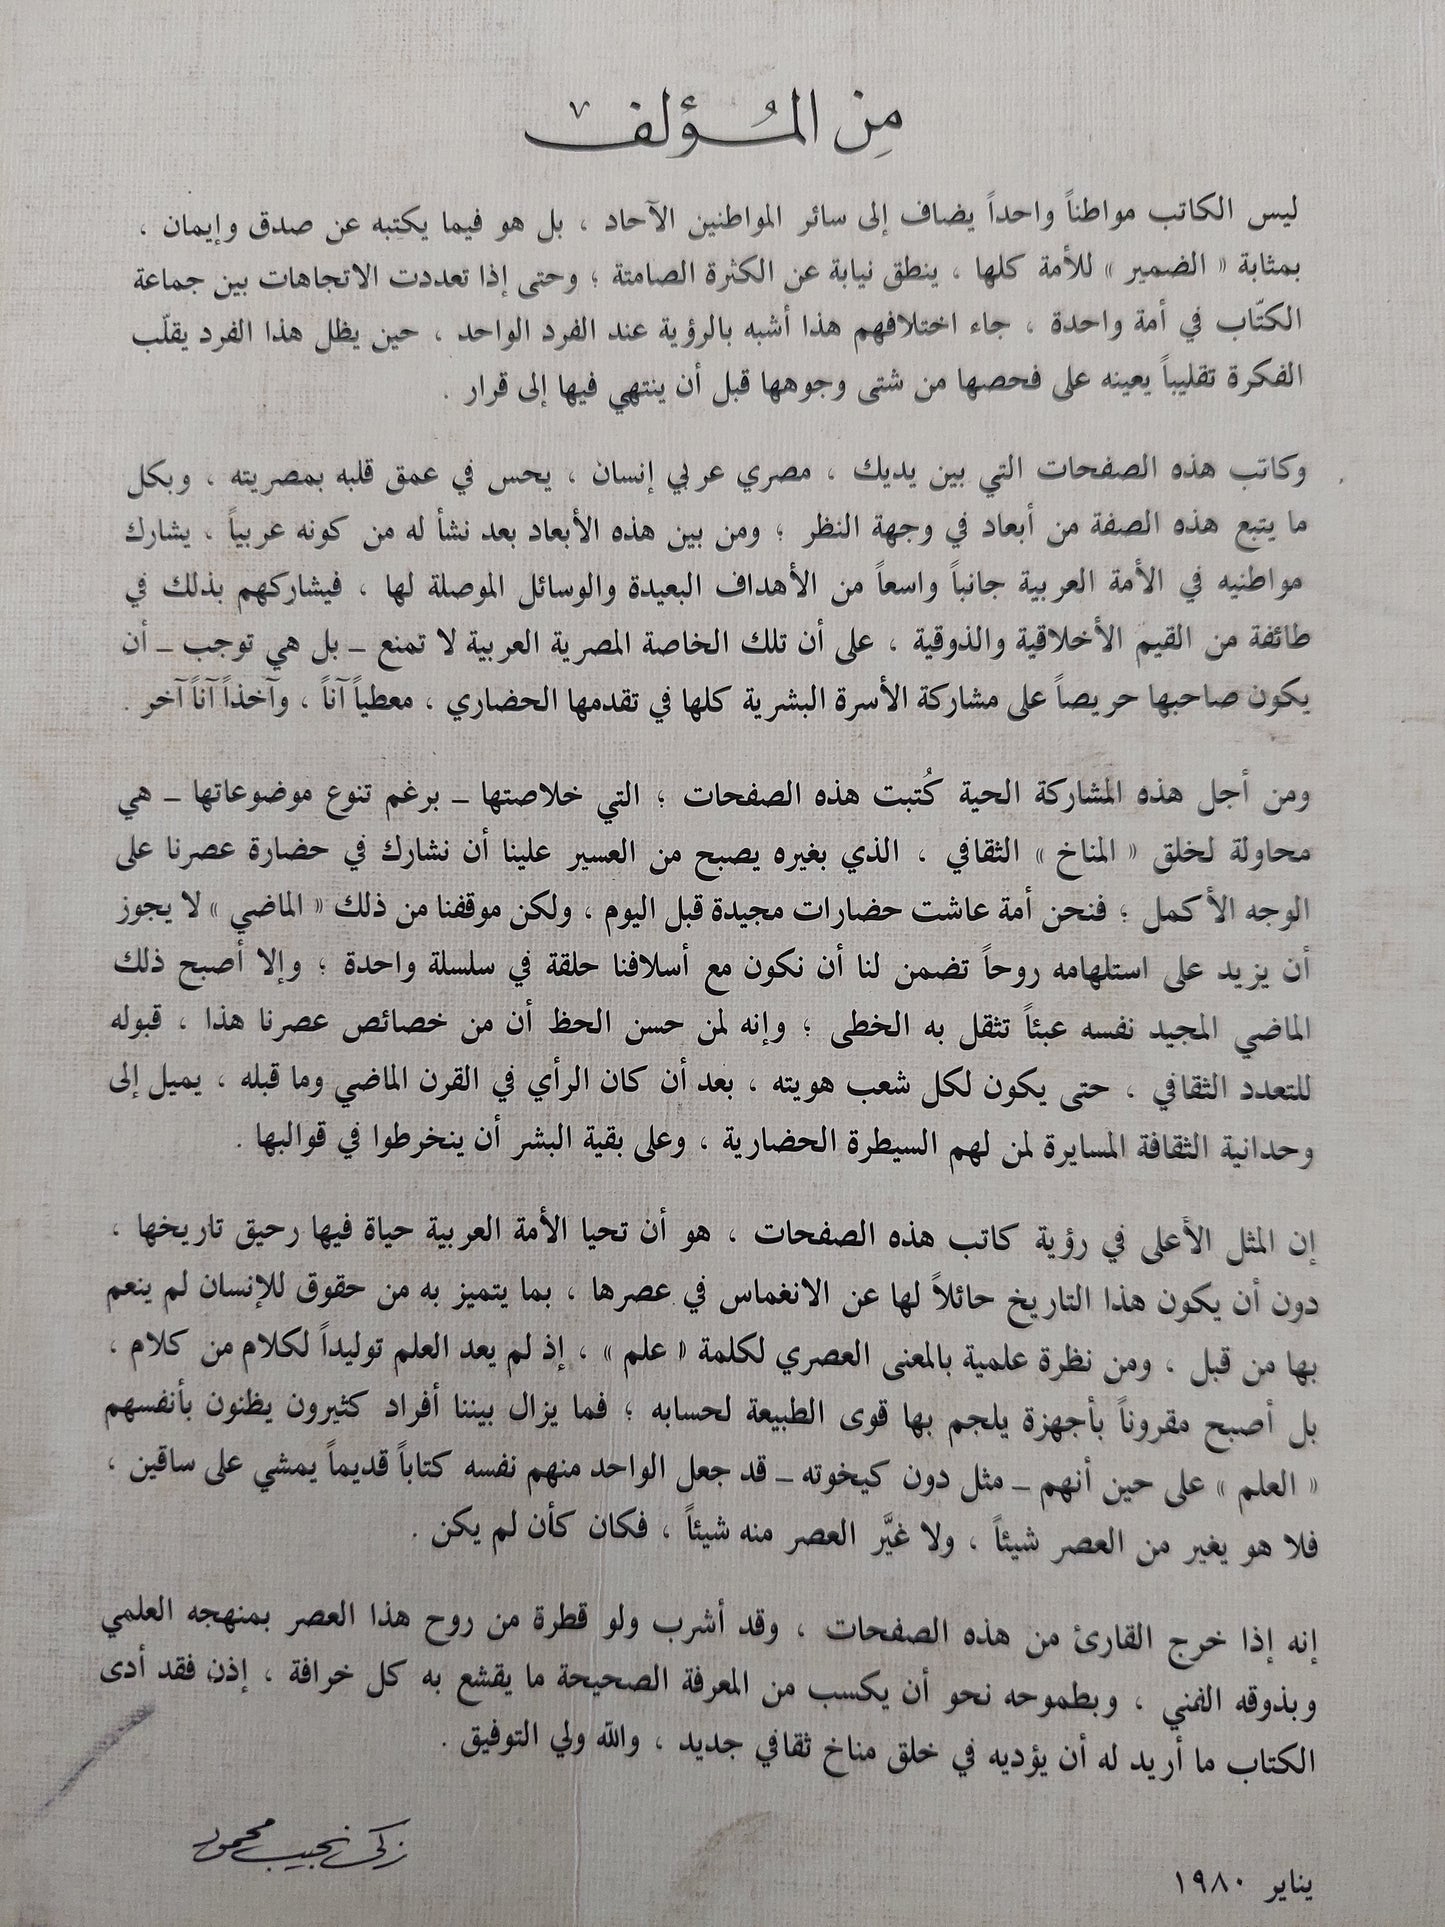 من المؤلف
ليس الكاتب مواطناً واحداً يضاف إلى سائر المواطنين الآحاد ، بل هو فيما يكتبه عن صدق وإيمان ،
بمثابة « الضمير » للأمة كلها ، ينطق نيابة عن الكثرة الصامتة ؛ وحتى إذا تعددت الاتجاهات بين جماعة
الكتّاب في أمة واحدة ، جاء اختلافهم هذا أشبه بالرؤية عند الفرد الواحد ، حين يظل هذا الفرد يقلّب
الفكرة تقليباً يعينه على فحصها من شتى وجوهها قبل أن ينتهي فيها إلى قرار .
وكاتب هذه الصفحات التي بين يديك ، مصري عربي إنسان ، يحس في عمق قلبه بمصريته ، وبكل
ما يتبع هذه الصفة من أبعاد في وجهة النظر ؛ ومن بين هذه الأبعاد بعد نشأ له من كونه عربياً ، يشارك
مواطنيه في الأمة العربية جانباً واسعاً من الأهداف البعيدة والوسائل الموصلة لها ، فيشاركهم بذلك في
طائفة من القيم الأخلاقية والذوقية ، على أن تلك الخاصة المصرية العربية لا تمنع ـ بل هي توجب ـ أن
يكون صاحبها حريصاً على مشاركة الأسرة البشرية كلها في تقدمها الحضاري ، معطياً آناً ، وآخذاً آناً آخر .
ومن أجل هذه المشاركة الحية كُتبت هذه الصفحات ؛ التي خلاصتها ـ برغم تنوع موضوعاتها ـ هي
محاولة لخلق « المناخ » الثقافي ، الذي بغيره يصبح من العسير علينا أن نشارك في حضارة عصرنا على
الوجه الأكمل ؛ فنحن أمة عاشت حضارات مجيدة قبل اليوم ، ولكن موقفنا من ذلك « الماضي » لا يجوز
أن يزيد على استلهامه روحاً تضمن لنا أن نكون مع أسلافنا حلقة في سلسلة واحدة ؛ وإلا أصبح ذلك
الماضي المجيد نفسه عبئاً تثقل به الخطى ؛ وإنه لمن حسن الحظ أن من خصائص عصرنا هذا ، قبوله
للتعدد الثقافي ، حتى يكون لكل شعب هويته ، بعد أن كان الرأي في القرن الماضي وما قبله ، يميل إلى
وحدانية الثقافة المسايرة لمن لهم السيطرة الحضارية ، وعلى بقية البشر أن ينخرطوا في قوالبها .
إن المثل الأعلى في رؤية كاتب هذه الصفحات ، هو أن تحيا الأمة العربية حياة فيها رحيق تاريخها ،
دون أن يكون هذا التاريخ حائلاً لها عن الانغماس في عصرها ، بما يتميز به من حقوق للإنسان لم ينعم
بها من قبل ، ومن نظرة علمية بالمعنى العصري لكلمة « علم » ، إذ لم يعد العلم توليداً لكلام من كلام ،
بل أصبح مقروناً بأجهزة يلجم بها قوى الطبيعة لحسابه ؛ فما يزال بيننا أفراد كثيرون يظنون بأنفسهم
« العلم » على حين أنهم ـ مثل دون كيخوته ـ قد جعل الواحد منهم نفسه كتاباً قديماً يمشي على ساقين ،
فلا هو يغير من العصر شيئاً ، ولا غيَّر العصر منه شيئاً ، فكان كأن لم يكن .
إنه إذا خرج القارئ من هذه الصفحات ، وقد أشرب ولو قطرة من روح هذا العصر بمنهجه العلمي
وبذوقه الفني ، وبطموحه نحو أن يكسب من المعرفة الصحيحة ما يقشع به كل خرافة ، إذن فقد أدى
الكتاب ما أريد له أن يؤديه في خلق مناخ ثقافي جديد ، والله ولي التوفيق .
زكي نجيب محمود
يناير ١٩٨٠